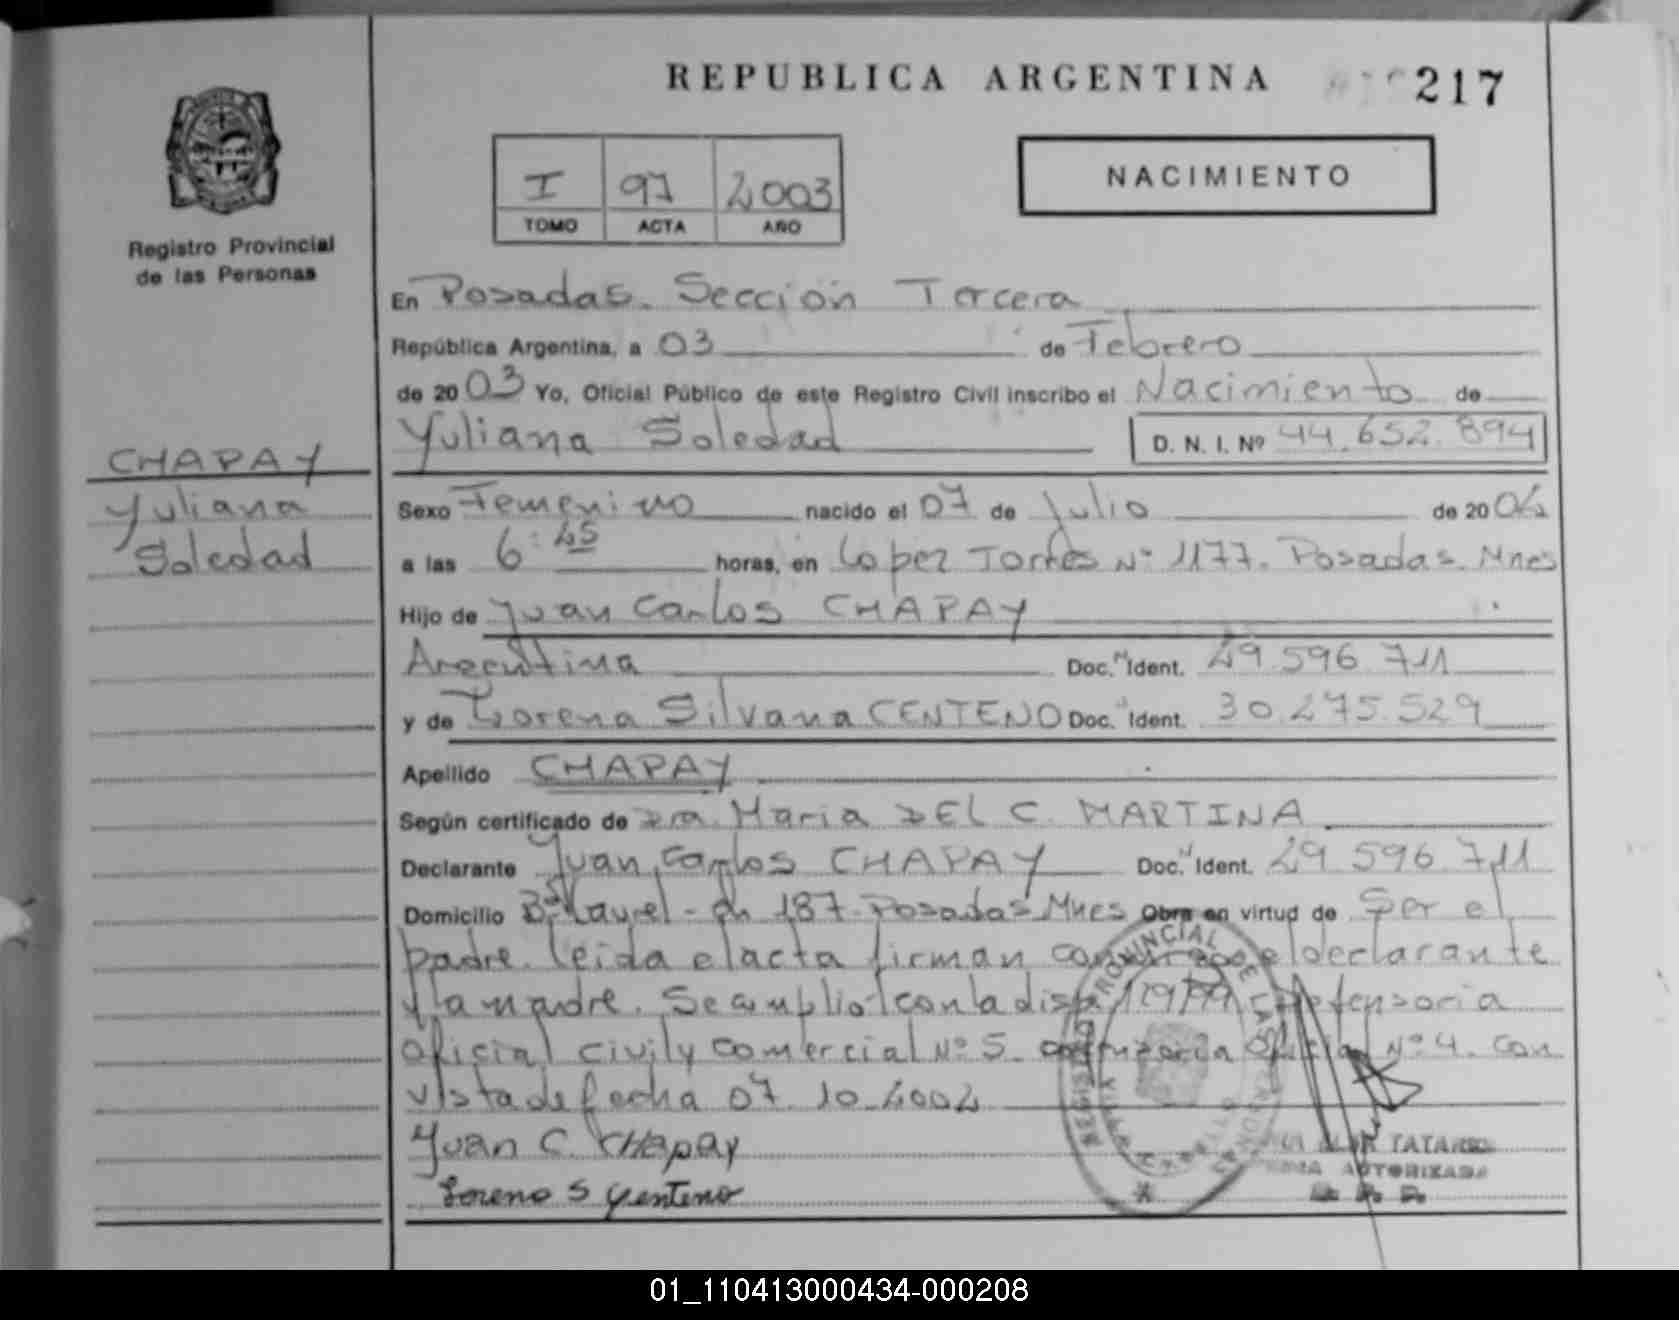 REPUBLICA ARGENTINA 217
I 97 2003
TOMO ACTA AÑO
NACIMIENTO
Registro Provincial
de las Personas
En Posadas. Sección Tercera
República Argentina, a 03 de Febrero
de 2003 Yo, Oficial Público de este Registro Civil inscribo el Nacimiento de
Yuliana Soledad D. N. I. Nº 44.652.894
CHAPAY
Yuliana
Soledad
Sexo Femenino nacido el 07 de Julio de 2002
a las 6:45 horas, en Lopez Torres Nº 1177. Posadas. Mnes
Hijo de Juan Carlos CHAPAY
Argentina Doc. Ident. 29.596.711
y de Lorena Silvana CENTENO Doc. Ident. 30.275.529
Apellido CHAPAY
Según certificado de Dra. Maria DEL C. MARTINA
Declarante Juan Carlos CHAPAY Doc. Ident. 29.596.711
Domicilio Bº Laurel - ch 187. Posadas Mnes Obra en virtud de Ser el
padre. leida el acta firman conmigo el declarante
y la madre. Se cumplio con la disp. 129/99 Defensoria
Oficial civil y comercial Nº 5. Oficial Nº 4. Con
vista de fecha 07.10.2002
Juan C. CHapay
Lorena S Centeno
REGISTRO PROVINCIAL DE LAS PERSONAS
AUTORIZADA
01_110413000434-000208